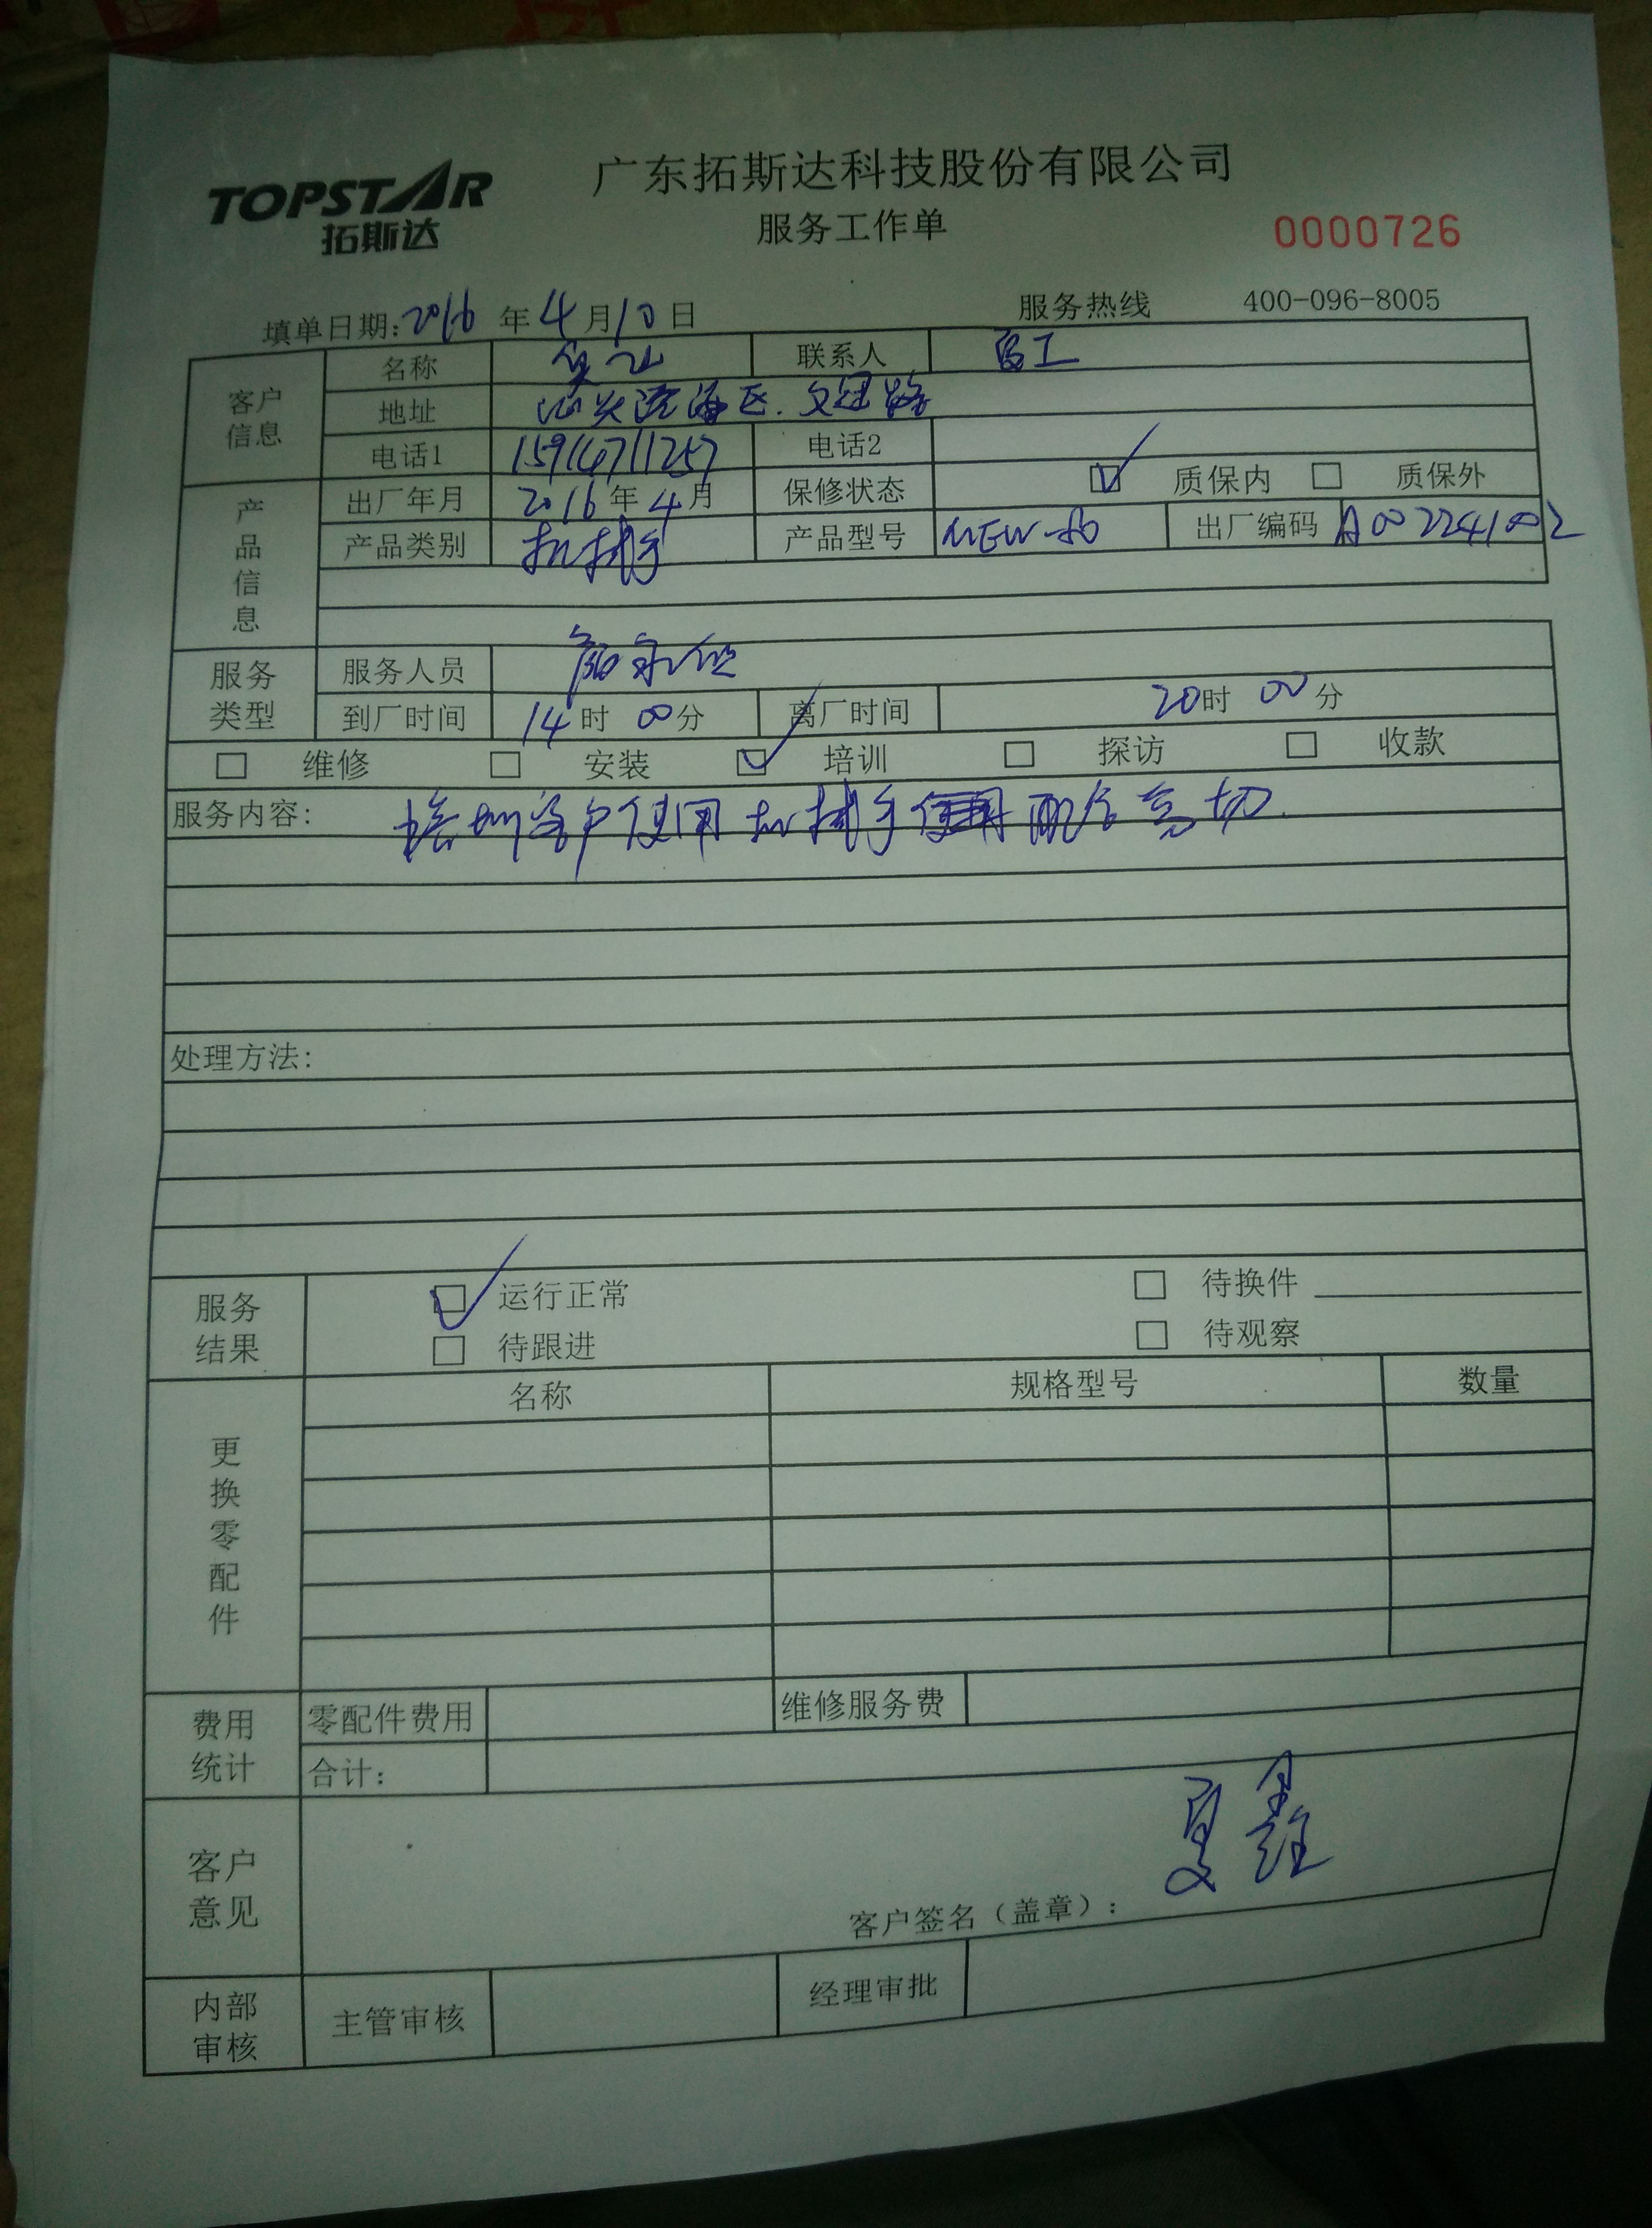 TOPSTAR
拓斯达
广东拓斯达科技股份有限公司
服务工作单
0000726
填单日期:2016 年 4 月 10 日 服务热线 400-096-8005
客户信息
名称 联系人
地址 汕头澄海区.文冠路
电话1 15914711257 电话2
产品信息
出厂年月 2016年4月 保修状态 ☑ 质保内 □ 质保外
产品类别 机械手 产品型号 出厂编码 A002241002
服务类型
服务人员
到厂时间 14 时 00分 离厂时间 20时 00分
□ 维修 □ 安装 ☑ 培训 □ 探访 □ 收款
服务内容: 培训客户使用机械手 配合剪切.
处理方法:
服务结果
☑ 运行正常 □ 待换件
□ 待跟进 □ 待观察
更换零配件
名称 规格型号 数量
费用统计
零配件费用 维修服务费
合计:
客户意见
客户签名（盖章）: 夏鑫
内部审核
主管审核 经理审批